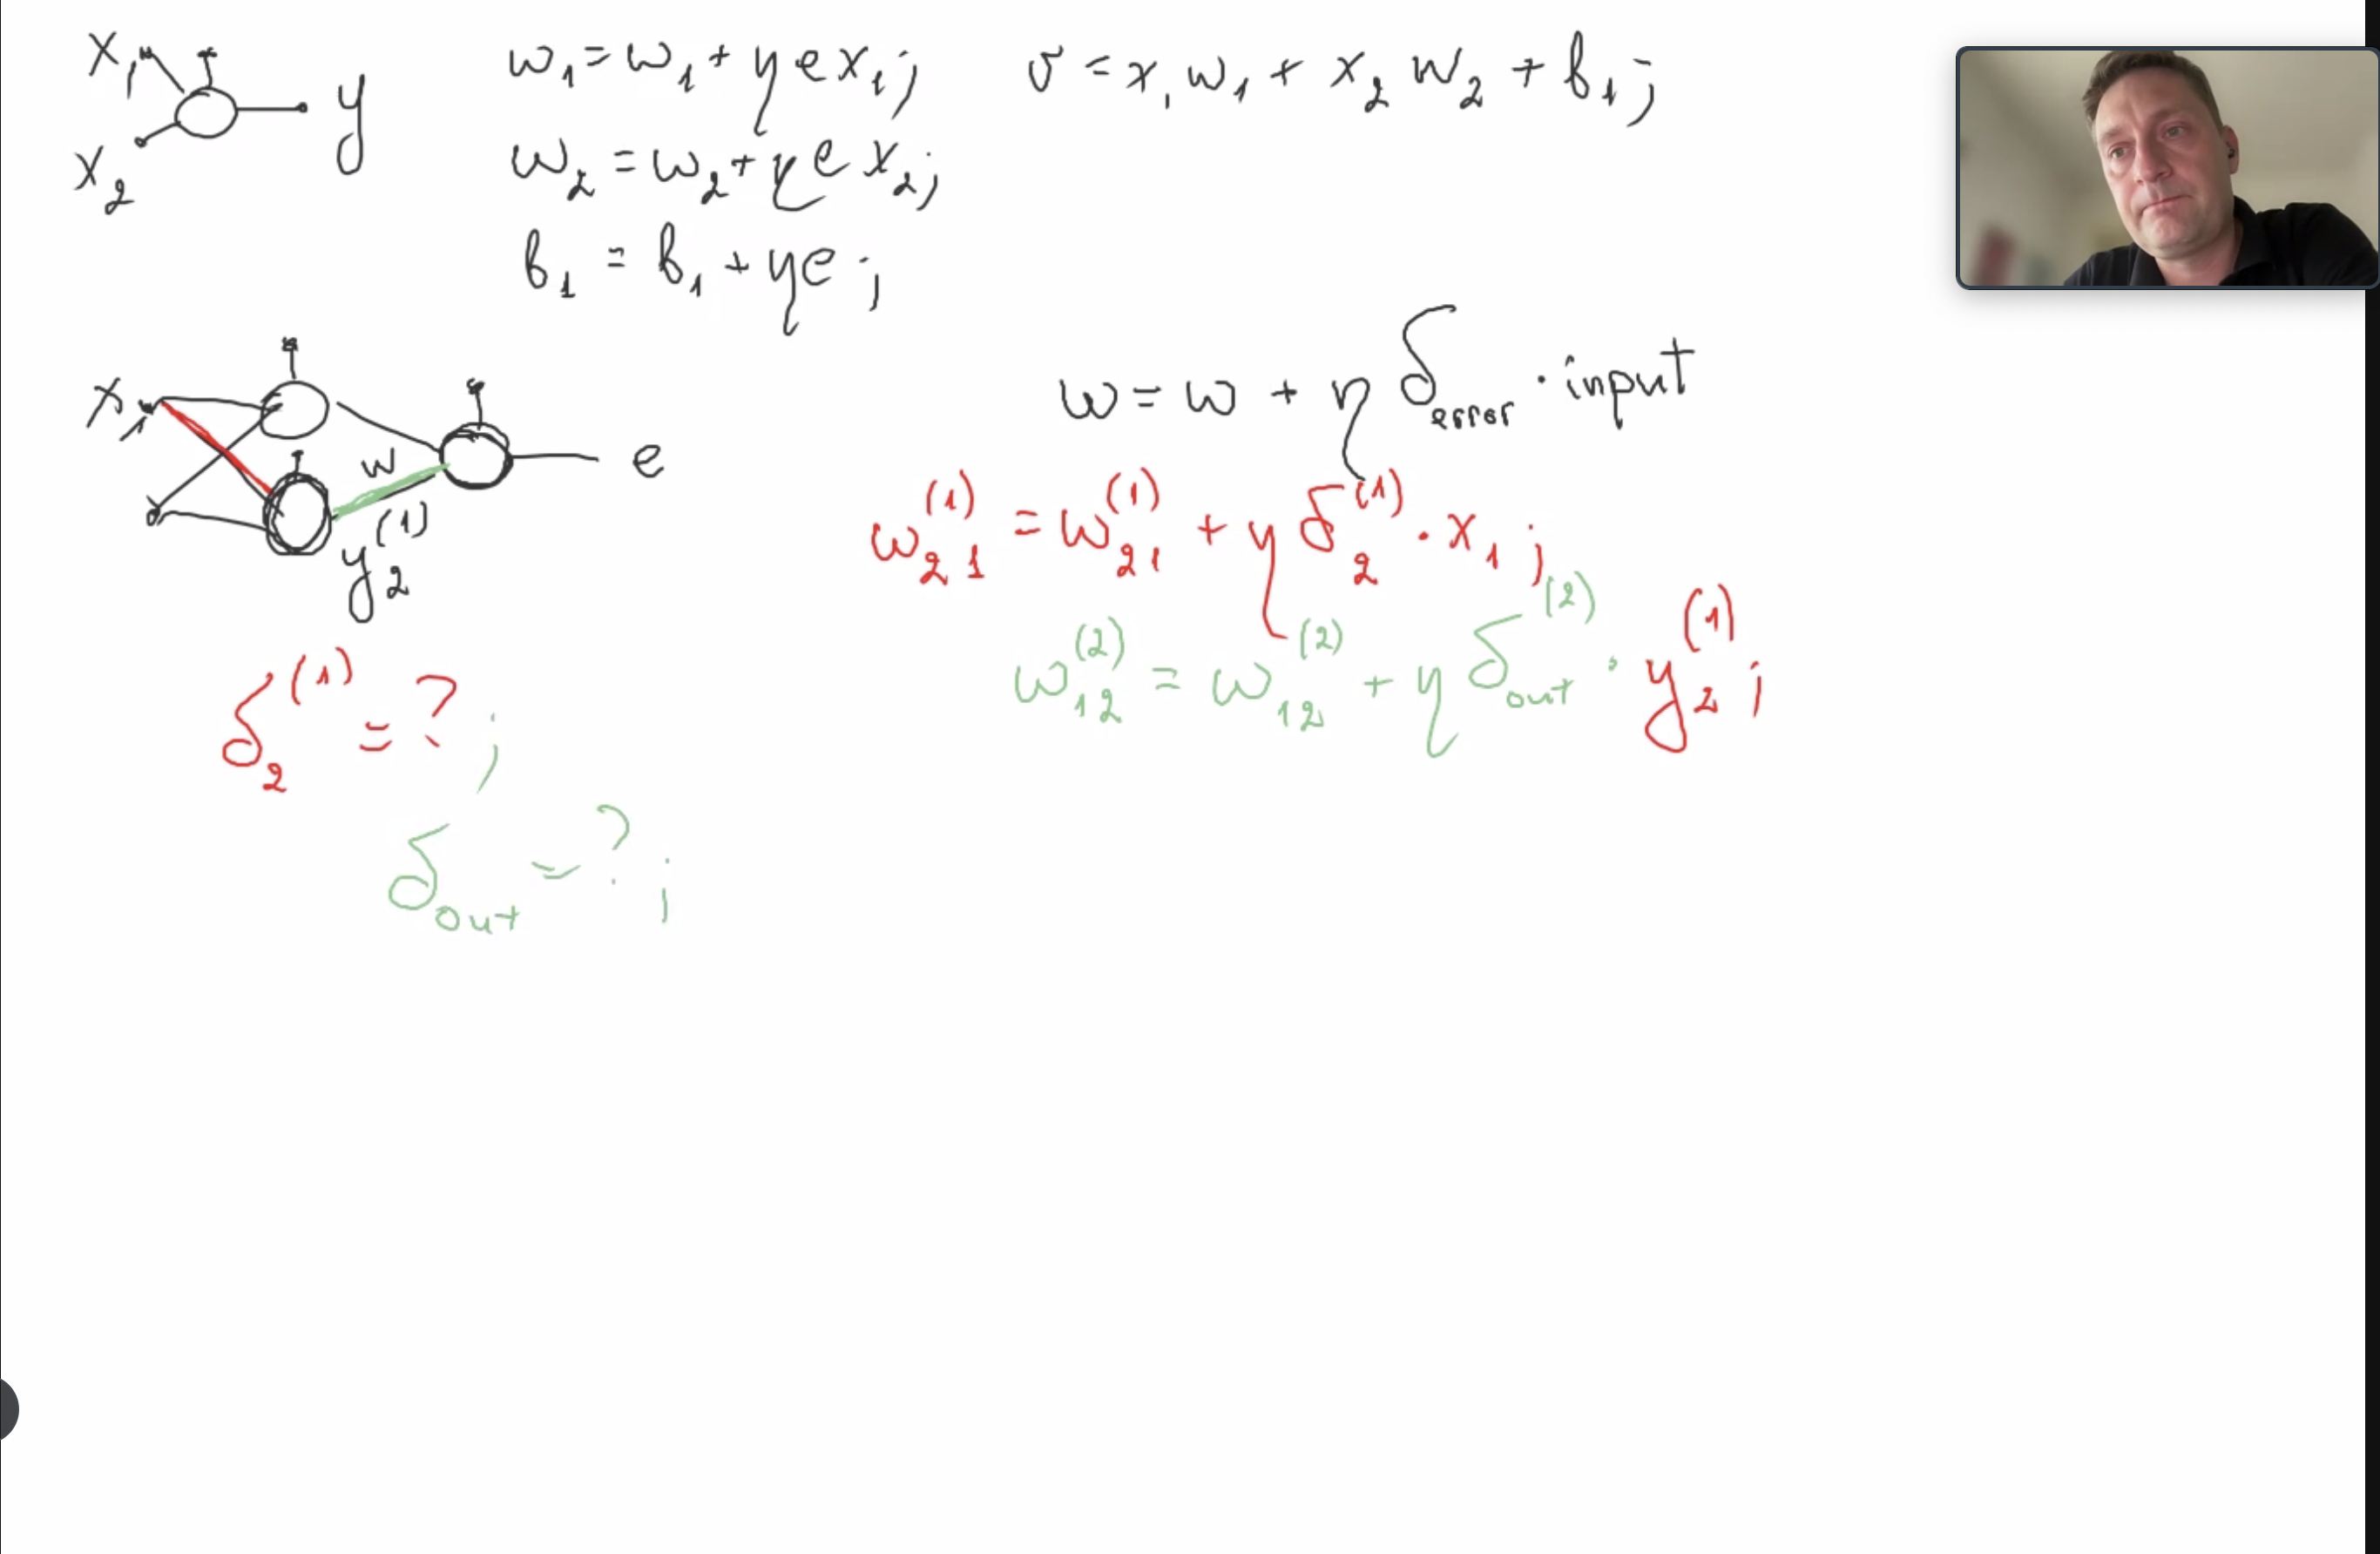 x₁
x₂
y
w₁ = w₁ + η e x₁;
w₂ = w₂ + η e x₂;
b₁ = b₁ + η e;
v = x₁ w₁ + x₂ w₂ + b₁;
x₁
w
y₂⁽¹⁾
e
w = w + η δ_error · input
w₂₁⁽¹⁾ = w₂₁⁽¹⁾ + η δ₂⁽¹⁾ · x₁;
w₁₂⁽²⁾ = w₁₂⁽²⁾ + η δ_out⁽²⁾ · y₂⁽¹⁾;
δ₂⁽¹⁾ = ?;
δ_out = ?;